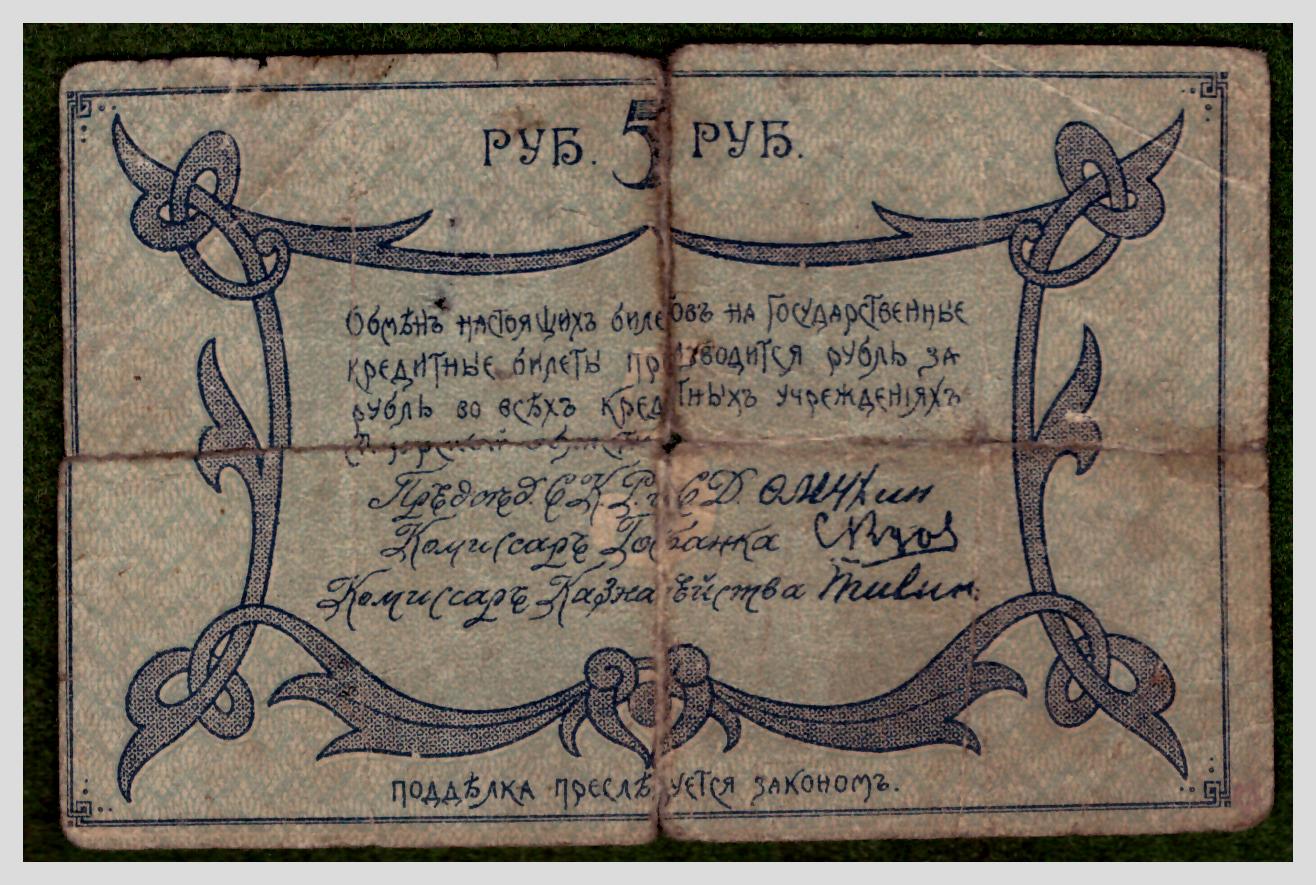 РУБ. 5 РУБ.
Обмѣнъ настоящихъ билетовъ на Государственные
кредитные билеты производится рубль за
рубль во всѣхъ кредитныхъ учрежденіяхъ
Предсѣд. С.К.Р. и С.Д.
Комиссаръ Госбанка
Комиссаръ Казначѣйства
поддѣлка преслѣдуется закономъ.